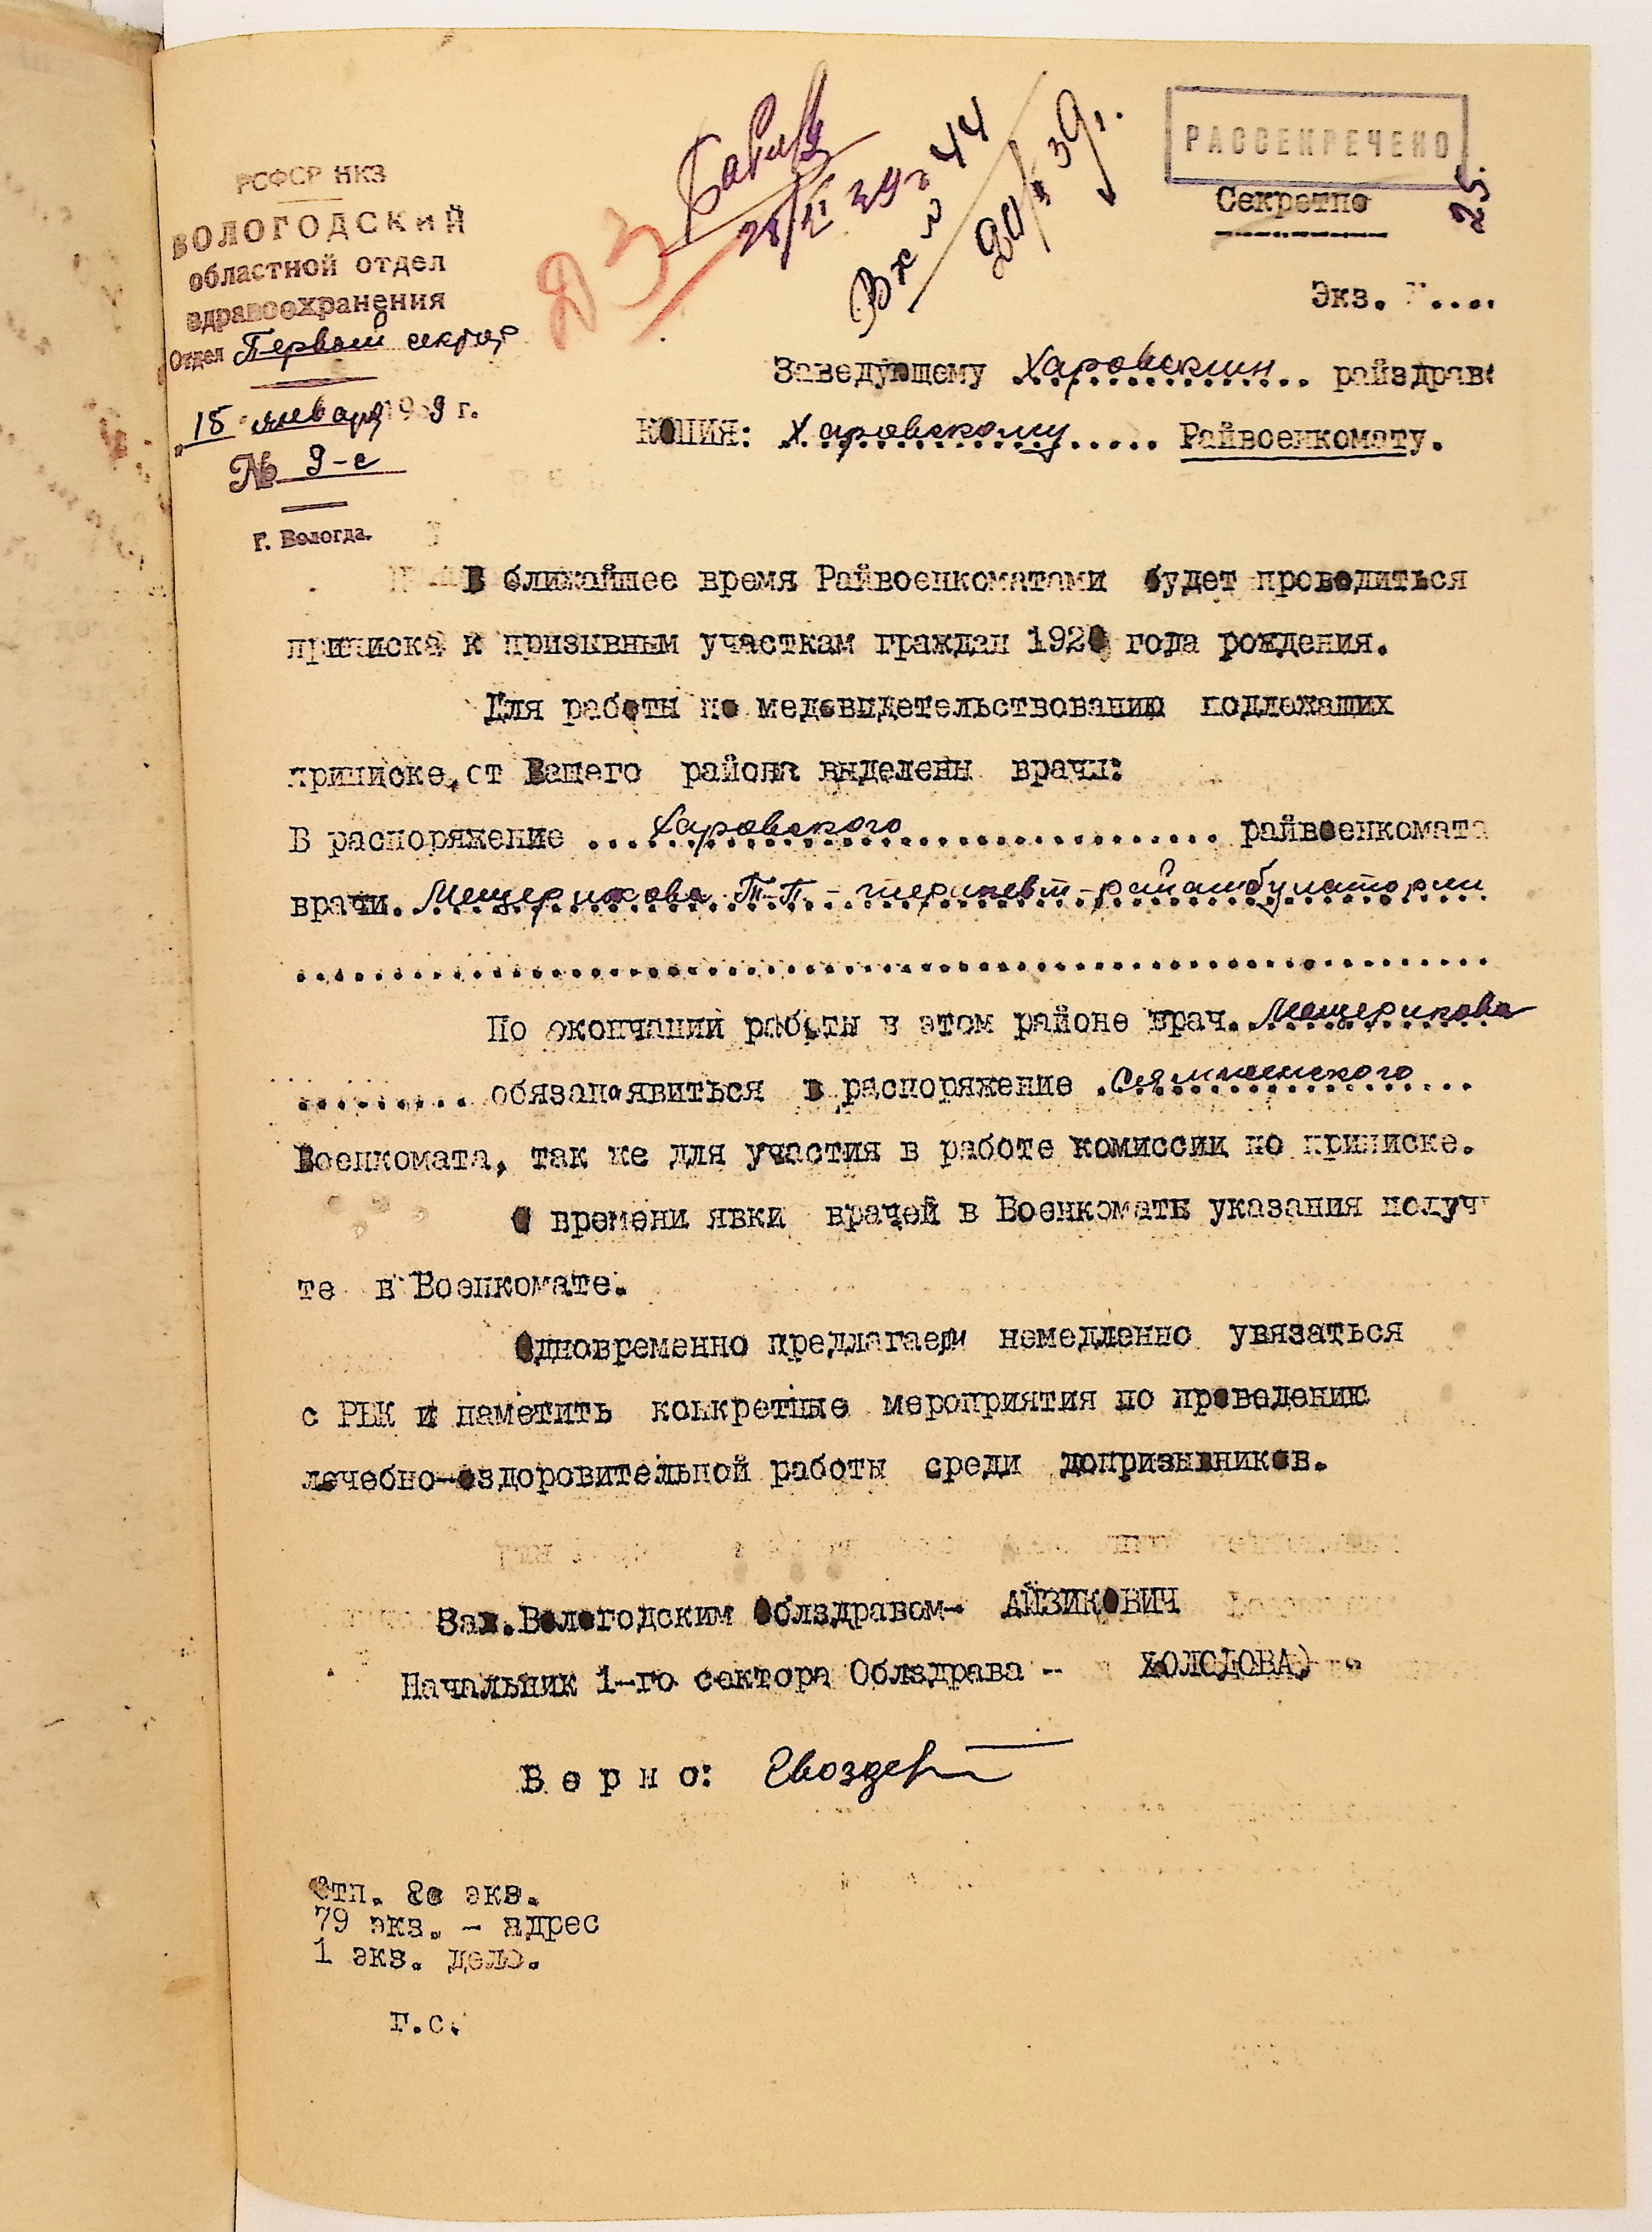 РАССЕКРЕЧЕНО
Секретно
25.
Экз.
РСФСР НКЗ
ВОЛОГОДСКИЙ
областной отдел
здравоохранения
Отдел Первый сектор
"18" января 1939 г.
№ 9-с
г. Вологда.
ДЗ
39г
Вх № 44
20/I 39г.
Заведующему Харовским райздрав
КОПИЯ: Харовскому Райвоенкомату.
В ближайшее время Райвоенкоматами будет проводиться
приписка к призывным участкам граждан 1920 года рождения.
Для работы по медсвидетельствованию подлежащих
приписке, от Вашего района выделены врачи:
В распоряжение ...Харовского... райвоенкомата
врачи. Мещерикова Т.П. - терапевт - райамбулатории
По окончании работы в этом районе врач. Мещерикова
......... обязана явиться в распоряжение .Сямженского...
Военкомата, так же для участия в работе комиссии по приписке.
О времени явки врачей в Военкоматы указания получ
те в Военкомате.
Одновременно предлагаем немедленно увязаться
с РВК и наметить конкретные мероприятия по проведению
лечебно-оздоровительной работы среди допризывников.
Зав.Вологодским Облздравом- АЙЗИКОВИЧ
Начальник 1-го сектора Облздрава - ХОЛОДОВА)
В е р н о: Гвоздев
Отп. 80 экз.
79 экз. - адрес
1 экз. дело.
г.с.